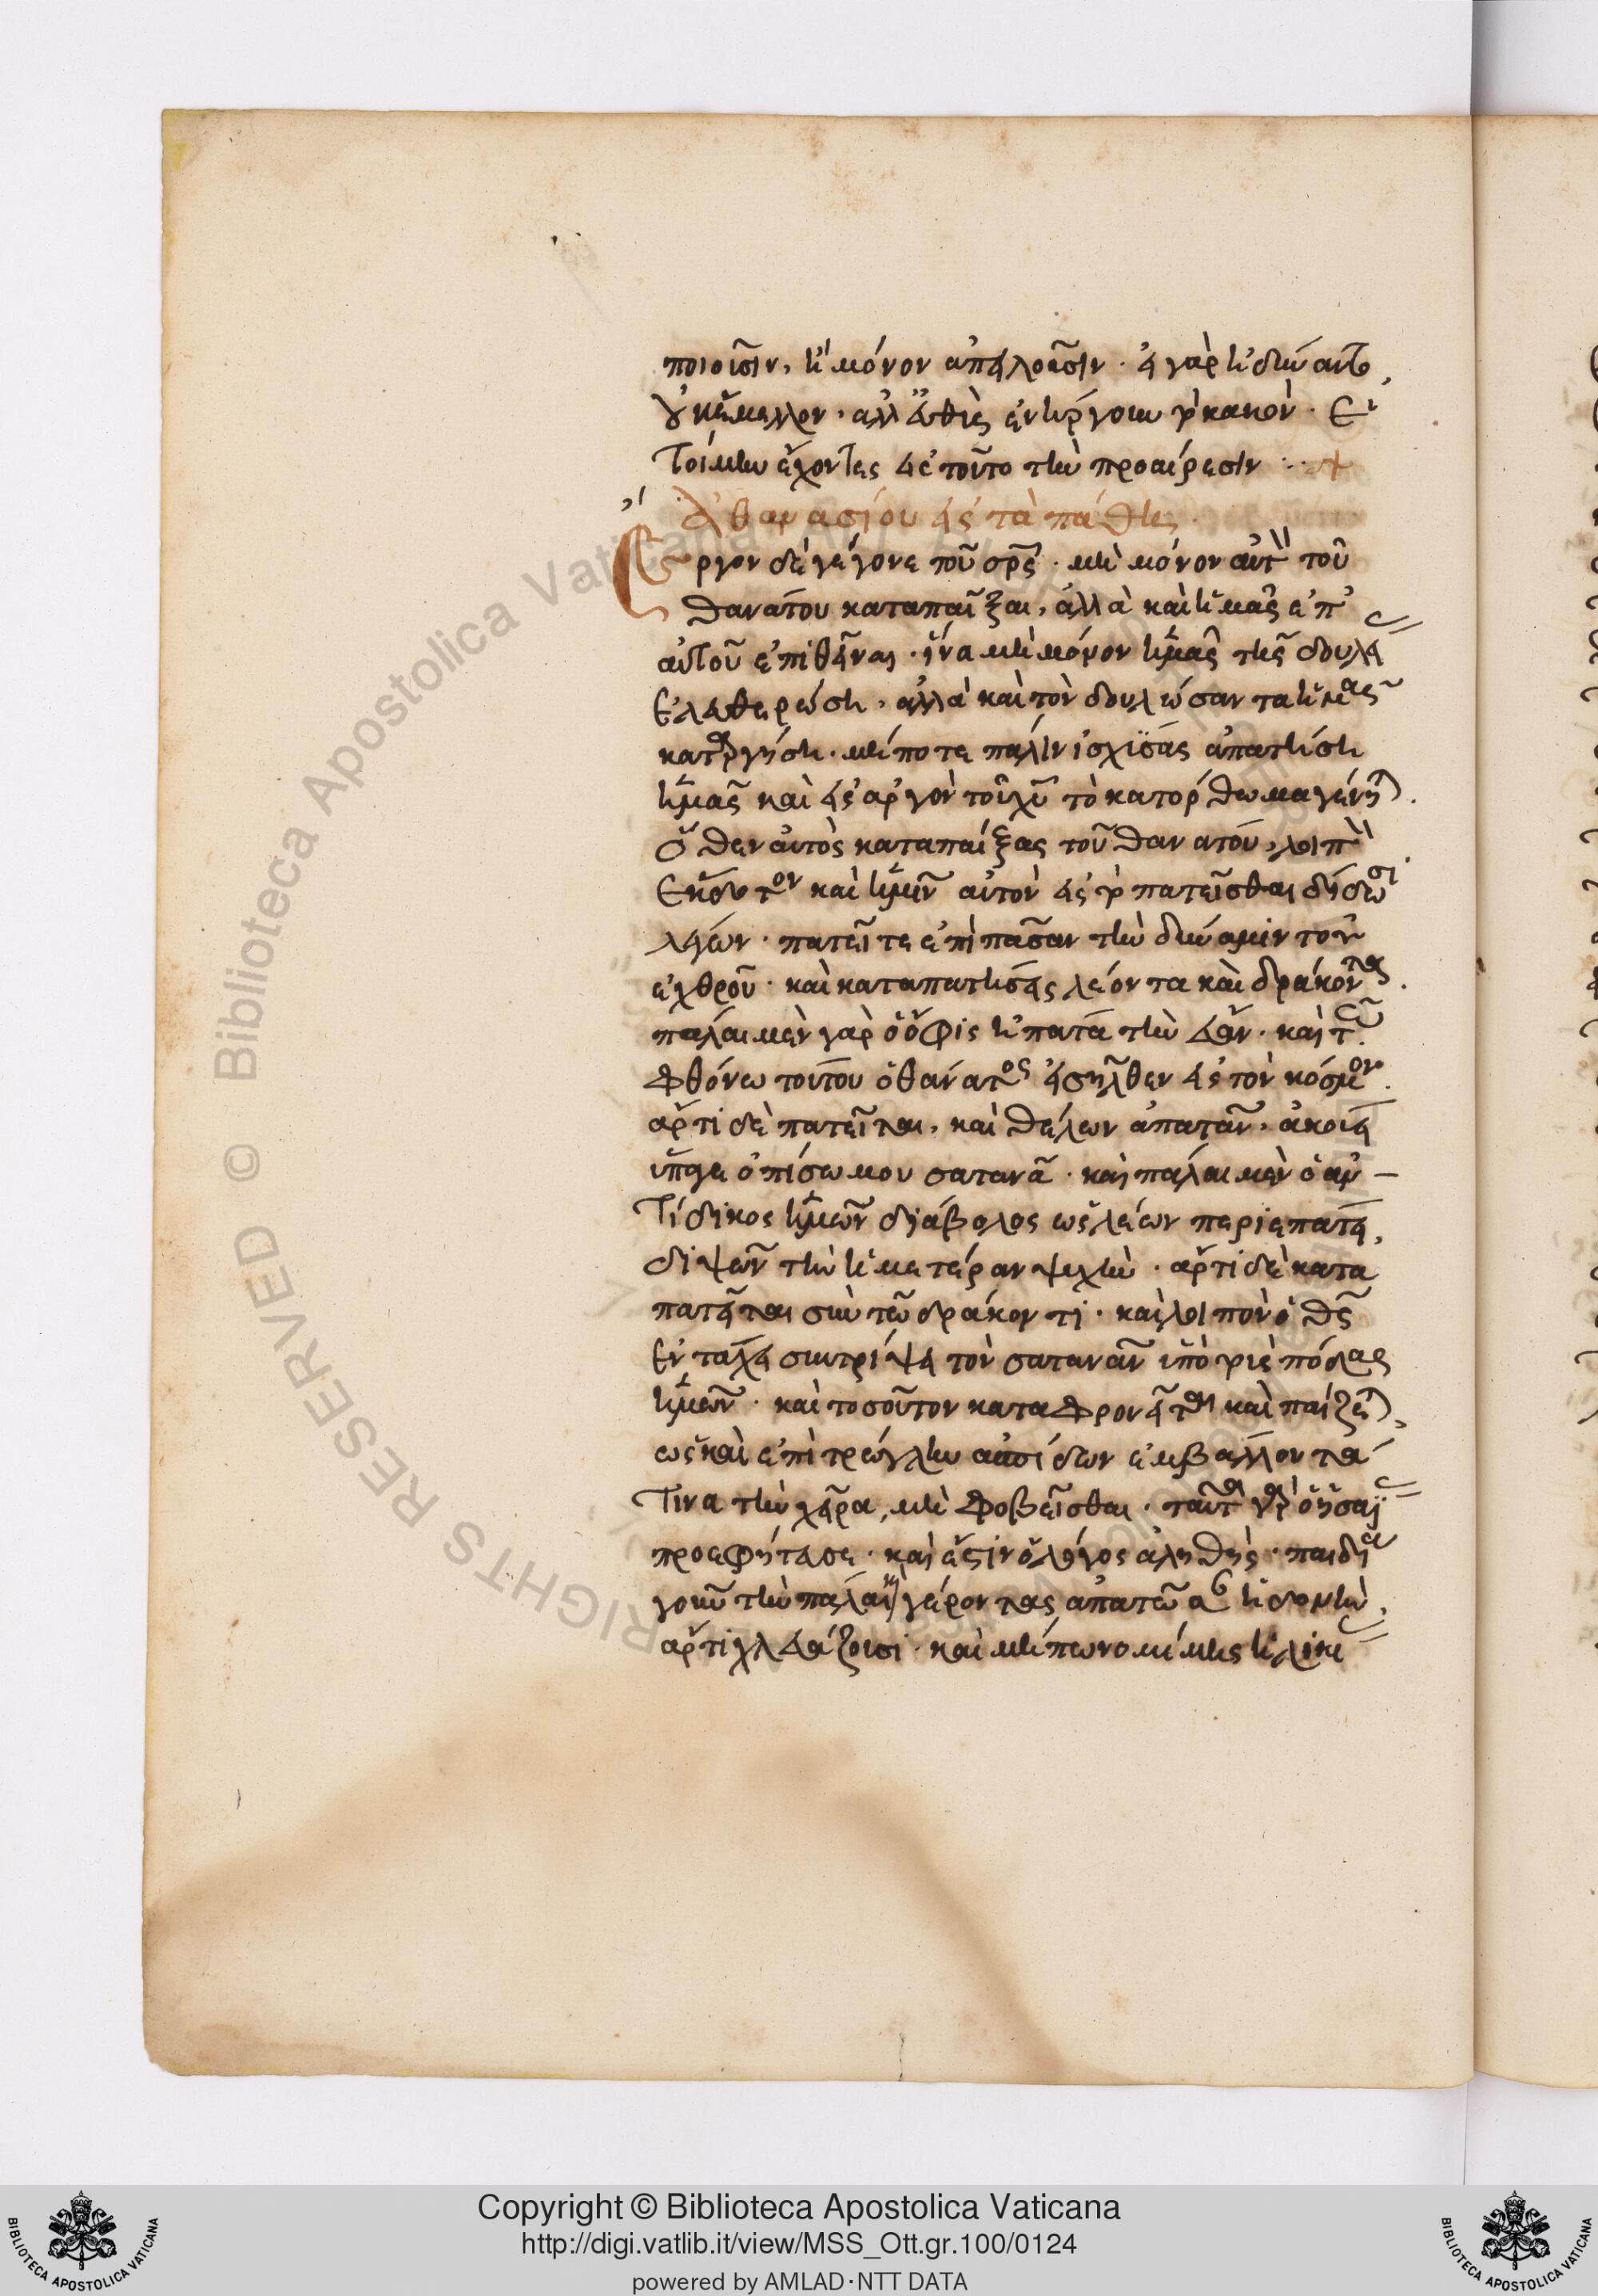 ποιοῦσιν, ἢ μόνον ἀπειλοῦσιν · εἰ γὰρ ἠδύναντο,
οὐκ ἔμελλον · ἀλλ' εὐθὺς ἐνήργουν τὸ κακὸν · ἑ
τοίμην ἔχοντες εἰς τοῦτο τὴν προαίρεσιν ·· +
Ἀθανασίου εἰς τὰ πάθη
Ἔργον δὲ γέγονε τοῦ σρς · μὴ μόνον αὐτὸν τοῦ
θανάτου καταπαῖξαι, ἀλλὰ καὶ ἡμᾶς ἐπ'
αὐτοῦ ἐπιθεῖναι · ἵνα μὴ μόνον ἡμᾶς τῆς δουλεί
ἐλευθερώσῃ, ἀλλὰ καὶ τὸν δουλώσαντα ἡμᾶς
καταργήσῃ · μήποτε πάλιν ἰσχύσας ἀπατήσῃ
ἡμᾶς καὶ εἰς ἀργὸν τοῦ χυ τὸ κατόρθωμα γένηται.
ὅθεν αὐτὸς καταπαίξας τοῦ θανάτου, λοιπὸν
ἔκδοτον καὶ ἡμῖν αὐτὸν εἰς τὸ πατεῖσθαι δίδωσι
λέγων · πατεῖτε ἐπὶ πᾶσαν τὴν δύναμιν τοῦ
ἐχθροῦ · καὶ καταπατήσεις λέοντα καὶ δράκοντα.
πάλαι μὲν γὰρ ὁ ὄφις ἠπάτα τὴν εὔαν · καὶ τῶ
φθόνω τούτου ὁ θάνατος εἰσῆλθεν εἰς τὸν κόσμον.
ἄρτι δὲ πατεῖται, καὶ θέλων ἀπατᾶν, ἀκούει
ὕπαγε ὀπίσω μου σατανᾶ · καὶ πάλαι μὲν ὁ ἀν –
τίδικος ἡμῶν διάβολος ὡς λέων περιεπάτει,
διψῶν τὴν ἡμετέραν ψυχὴν · ἄρτι δὲ κατα
πατεῖται σὺν τῶ δράκοντι · καὶ λοιπὸν ὁ θς
ἐν τάχει συντρίψει τὸν σατανᾶν ὑπὸ τοὺς πόδας
ἡμῶν · καὶ τοσοῦτον καταφρονεῖται καὶ παίζεται,
ὡς καὶ ἐπὶ τρώγλην ἀσπίδων ἐμβάλλοντά
τινα τὴν χεῖρα, μὴ φοβεῖσθαι · ταῦτα γὰρ ὁ ἡσαΐ
προεφήτευσε · καὶ ἔστιν ὁ λόγος ἀληθὴς · παιδία
γοῦν τὴν πάλαι γέροντας ἀπατῶσαν ἡδονὴν,
ἄρτι χλευάζουσι · καὶ μήπω νομίμης ἡλικί
Copyright © Biblioteca Apostolica Vaticana
http://digi.vatlib.it/view/MSS_Ott.gr.100/0124
powered by AMLAD·NTT DATA